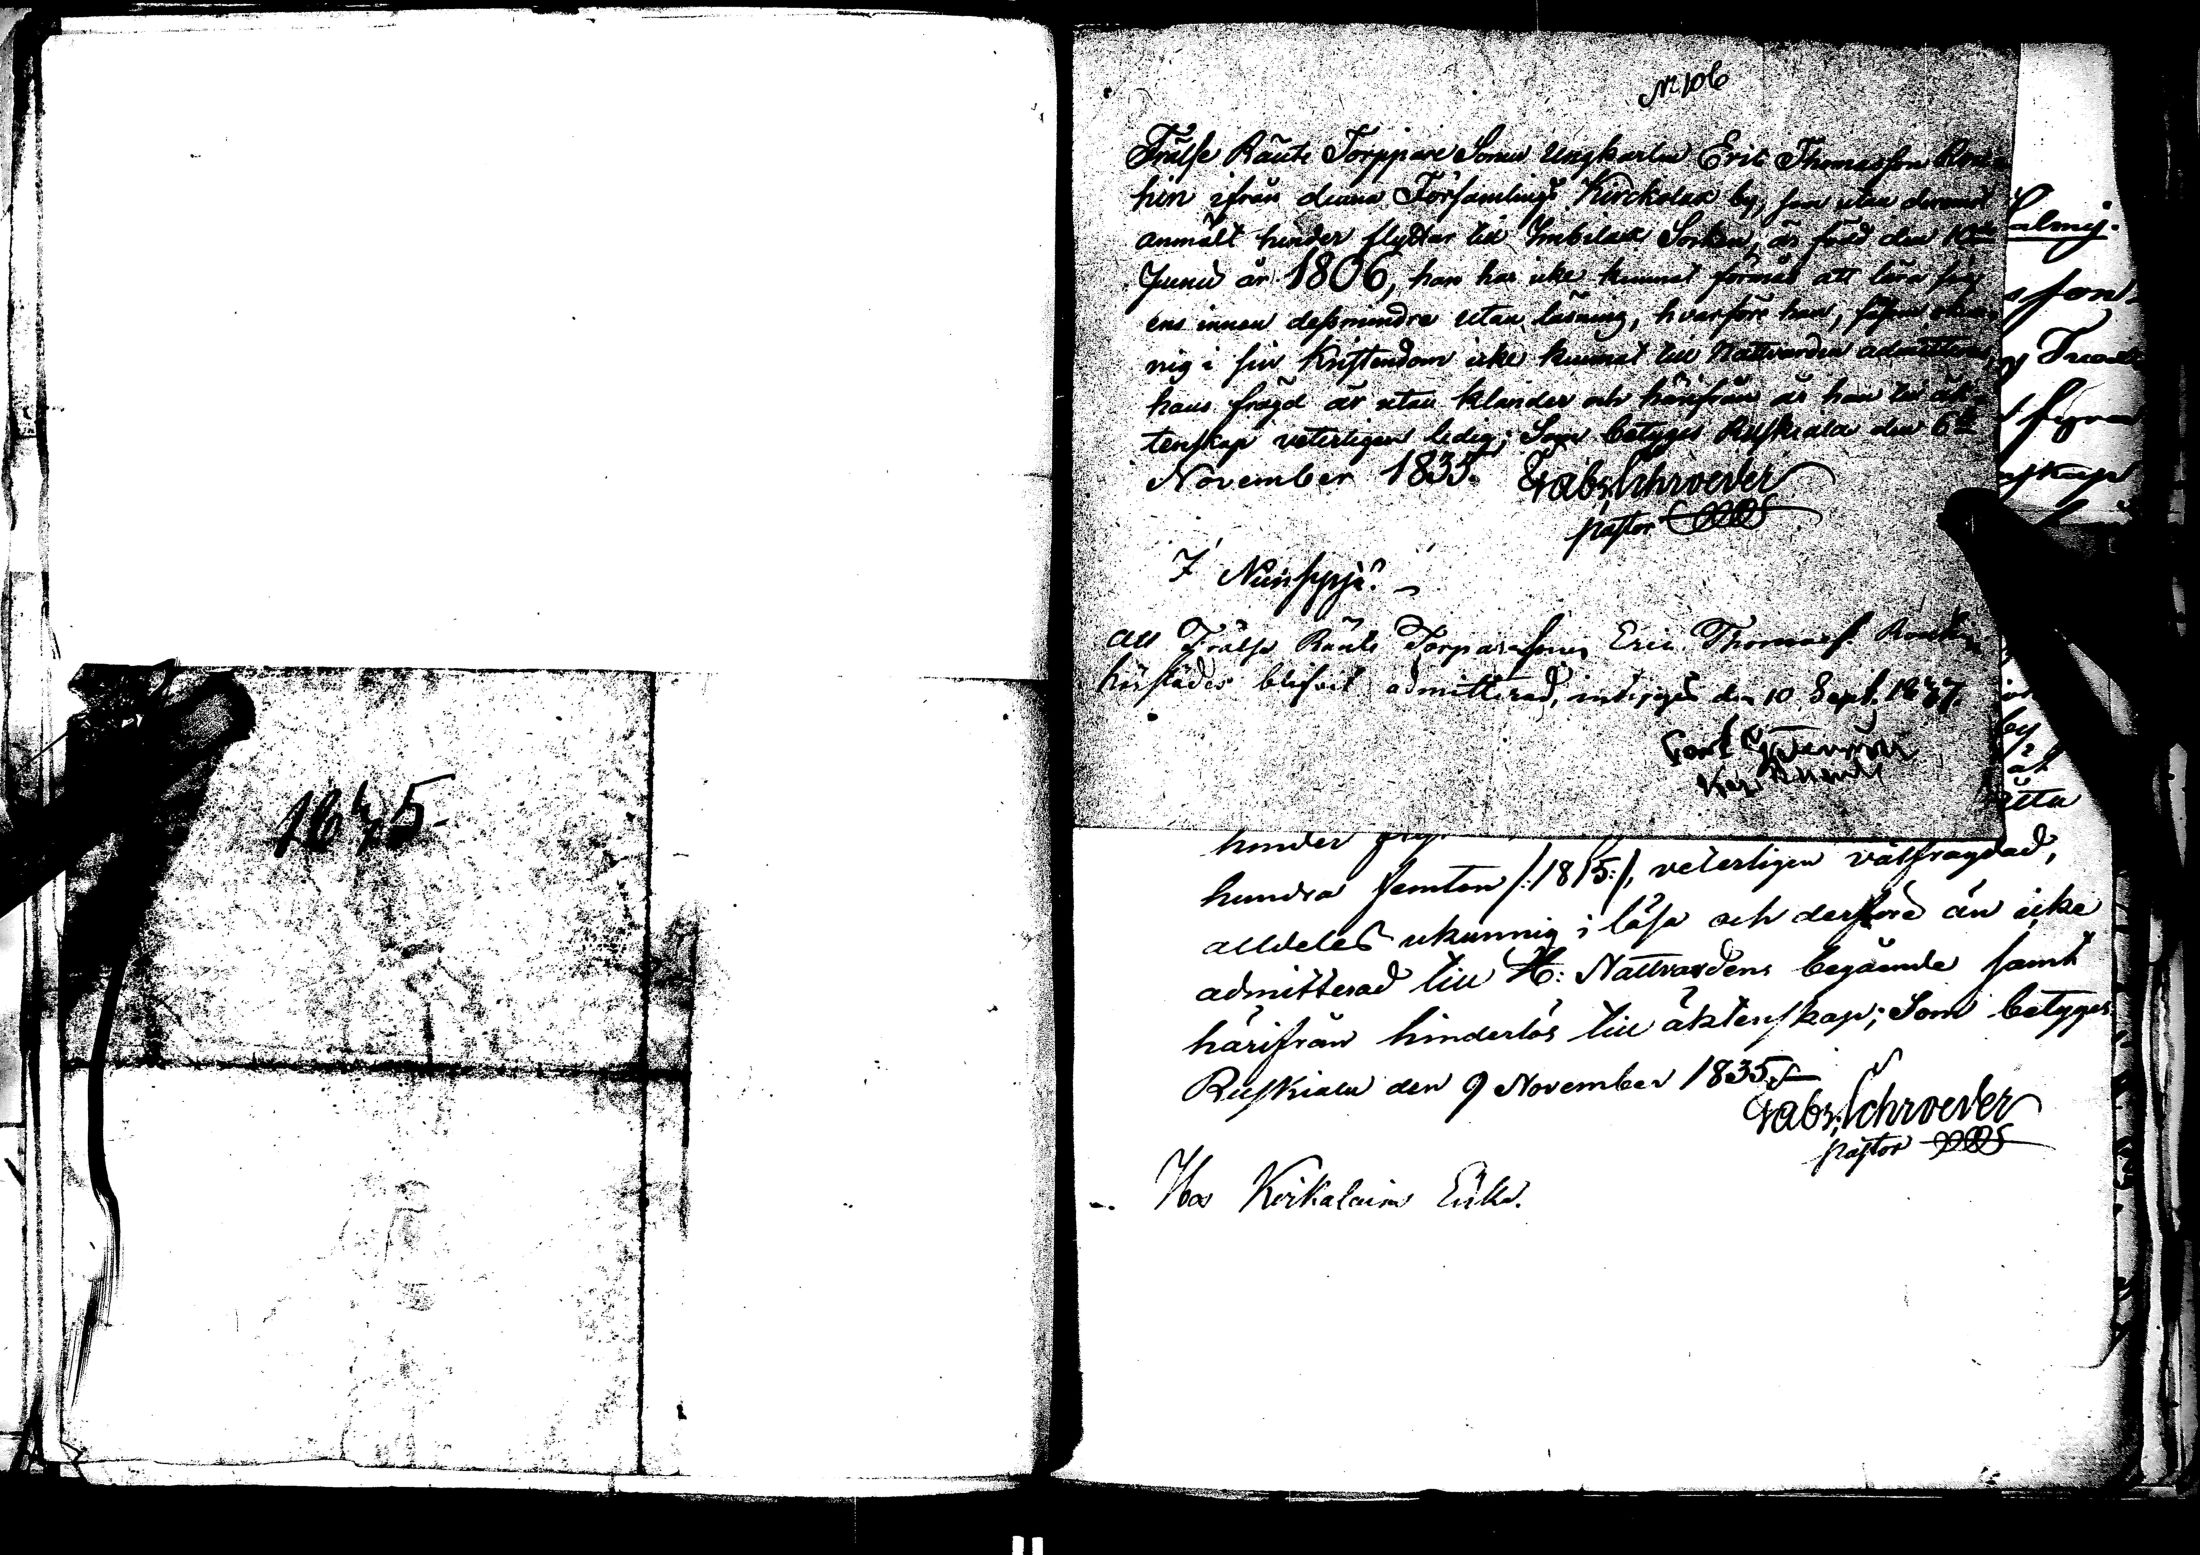 1845
No 106
Frälse Ränte Torppare Sonen Ungkarlen Eric Thomasson
hin ifrån denna Församlings Kirckolax by, som utan deremot
anmält hinder flyttar till Imbilax Socken, är född den 10de
Junii år 1806, han har icke kunnat förmås att lära sig
ens innan dessmindre utan läsning, hvarföre han, såsom okun-
nig i sin Kristendom icke kunnat till Nattvarden admitteras,
hans frägd är utan klander och härifrån är han till äk-
tenskap veterligen ledig; Som betyges Ruskiala den 6te
November 1835. Gabr. Schroeder
pastor
I
Att Frälse Ränte Torparesonen Eric Thomass.
härstädes blifvit admitterad, intygas den 10 Sept. 1837.
Carl
almy.
son
hinder
hundra femton /:1815:/, veterligen välfrägdad,
alldeles okunnig i läsa och derföre än icke
admitterad till H: Nattvardens begående samt
härifrån hinderlös till äktenskap; Som betyges
Ruskiala den 9 November 1835.
Gabr. Schroeder
pastor